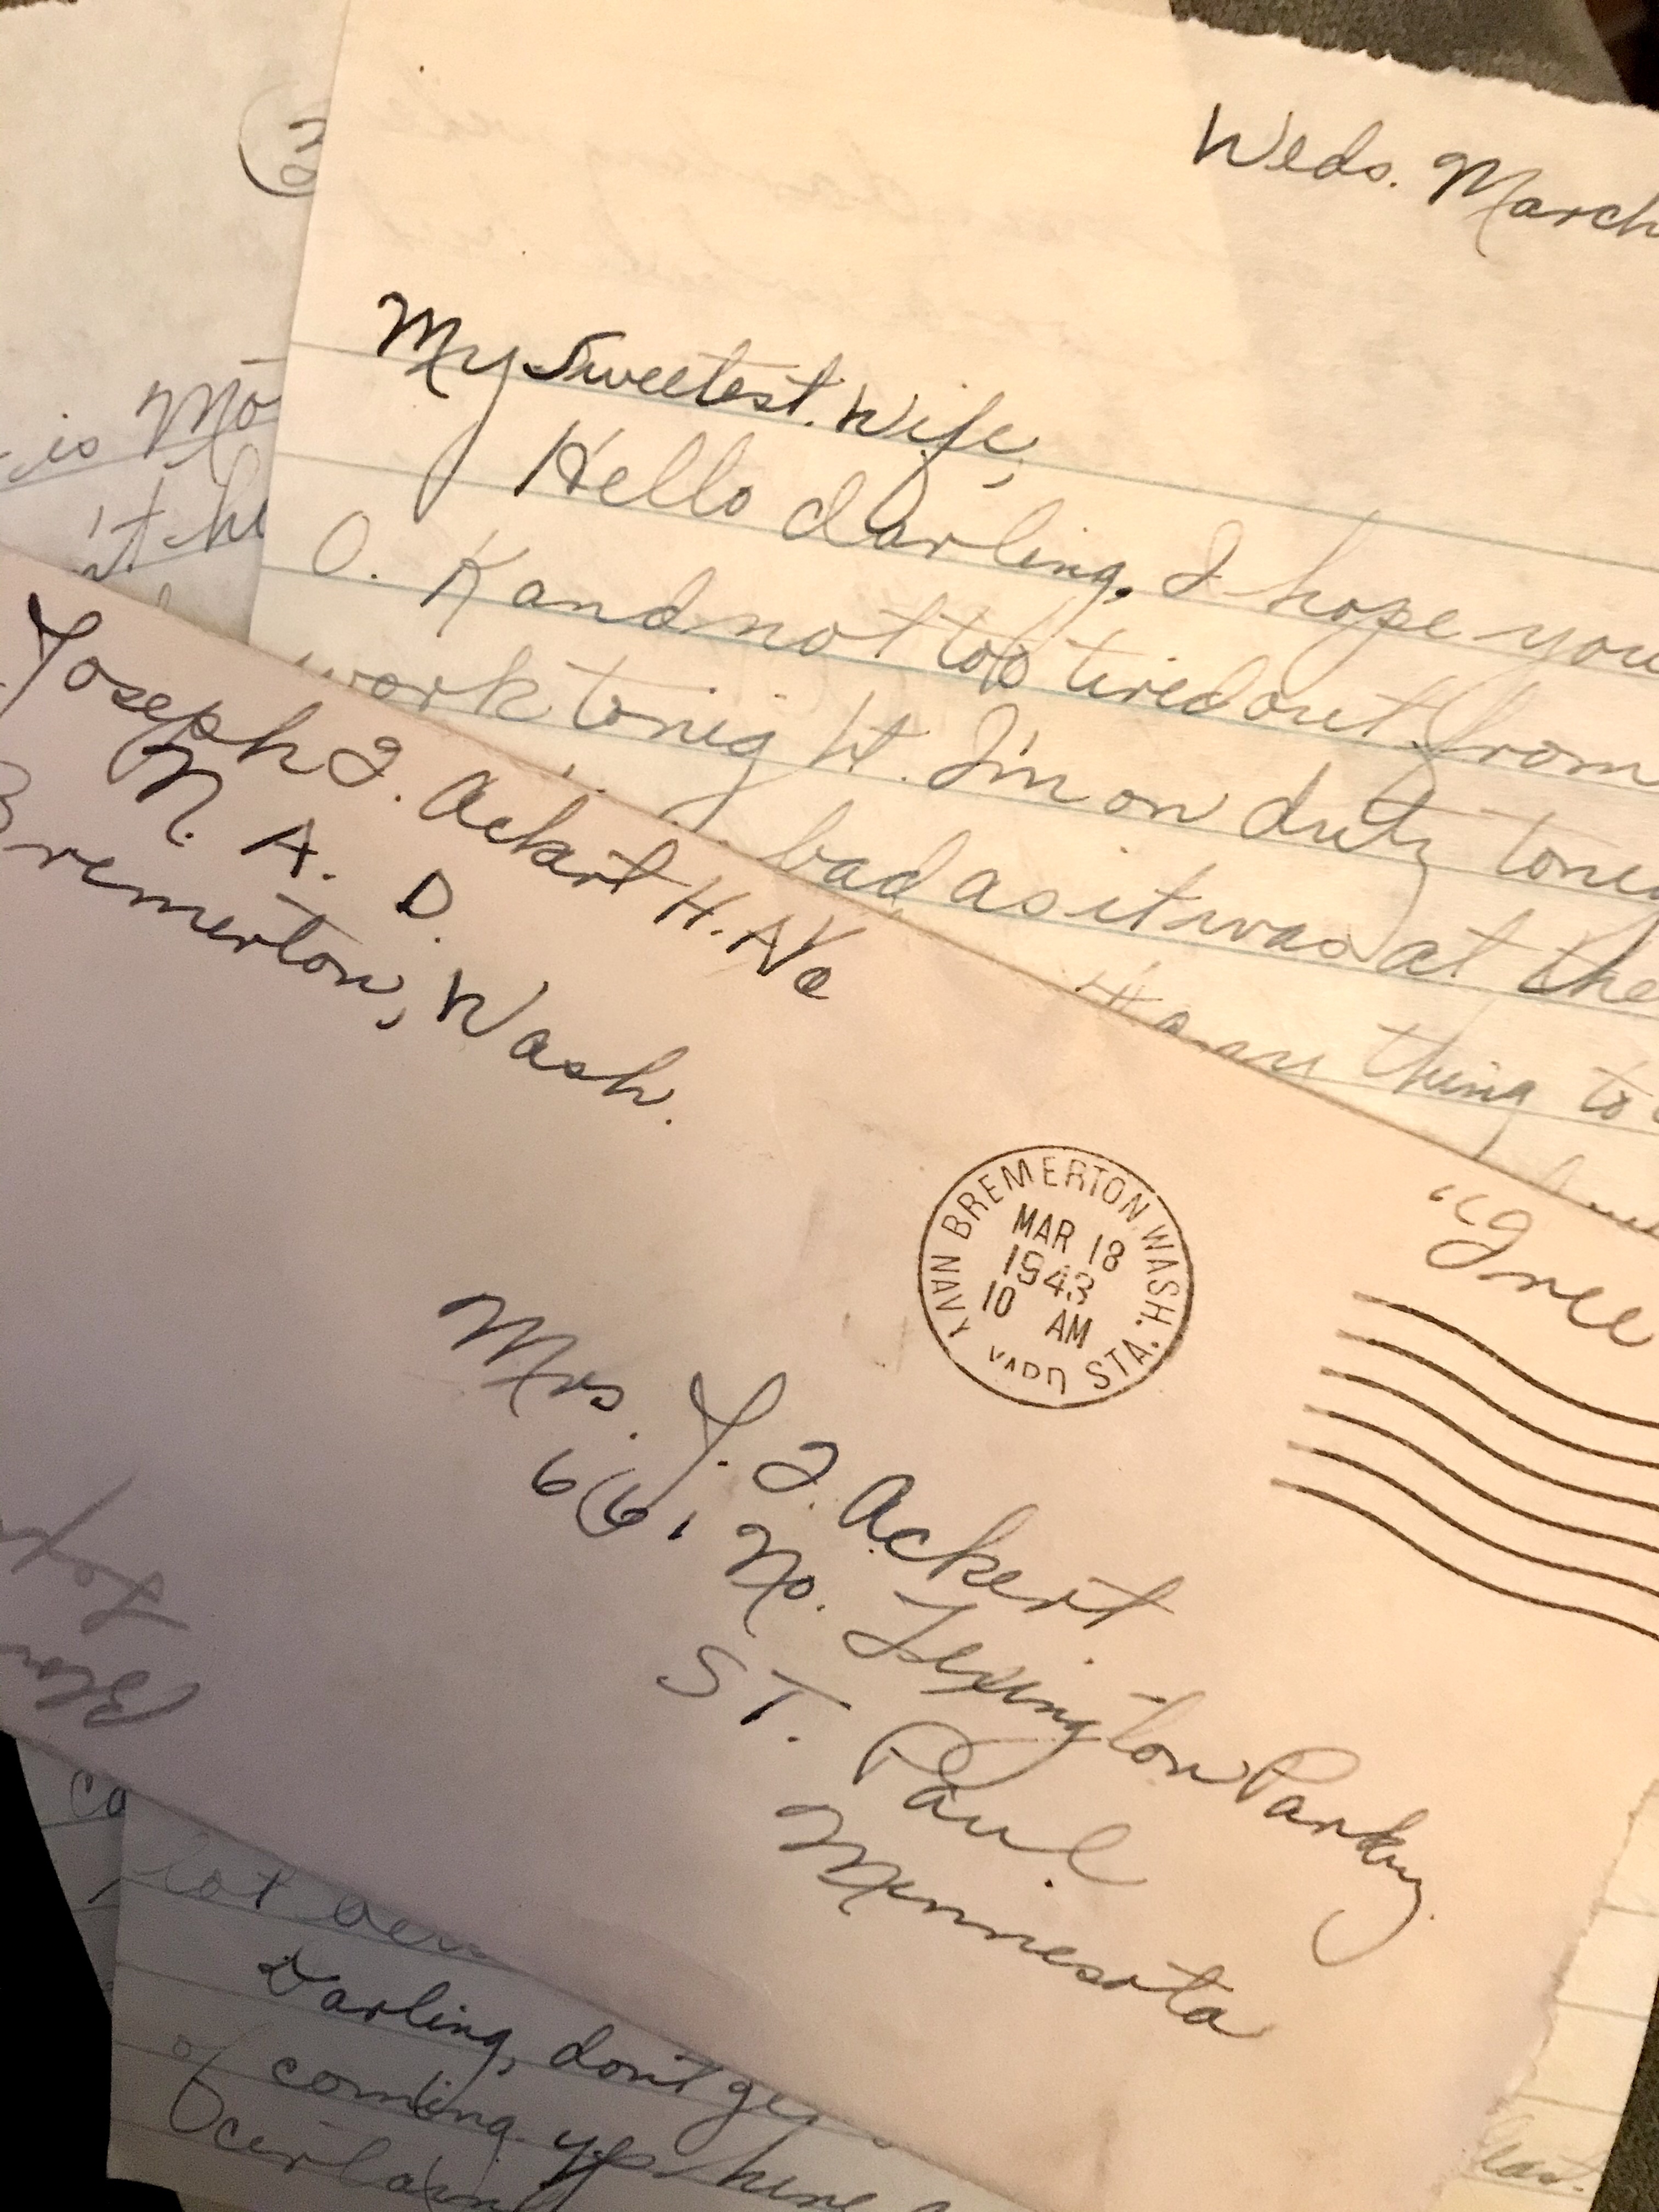 Weds. March
My Sweetest Wife,
Hello darling, I hope you
O. K and not too tired out from
work tonight. I'm on duty tonig
bad as it was at the
thing to
is Mo
't he
Joseph J. Ackert H.A.
N. A. D.
Bremerton, Wash.
NAVY BREMERTON, WASH. YARD STA.
MAR 18
1943
10 AM
"Free
Mrs. J. J. Ackert
661 No. Lexington Parkwy.
ST. Paul
Minnesota
co
lot
Darling, don't ge
of coming up here